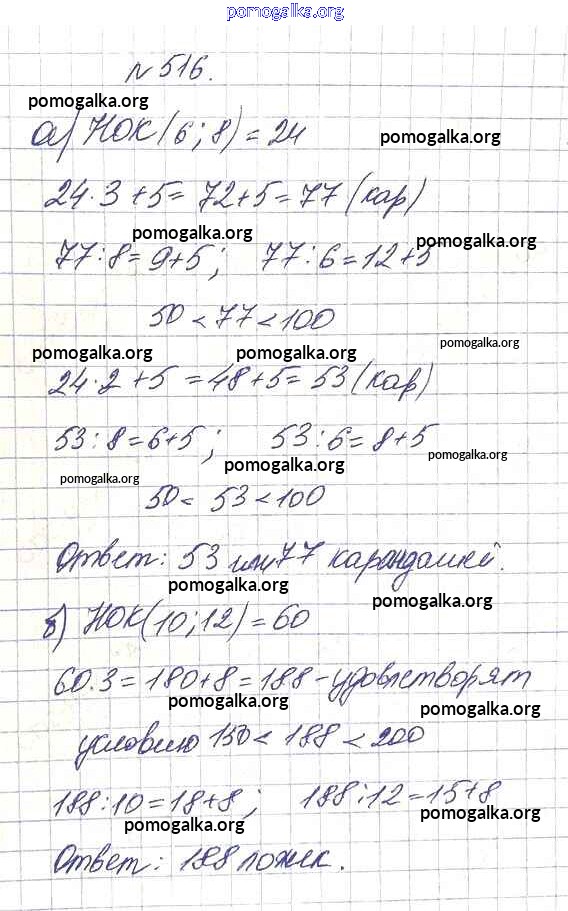 pomogalka.org
№ 516.
pomogalka.org
а) НОК(6;8) = 24
pomogalka.org
24·3+5=72+5=77 (кар)
pomogalka.org
pomogalka.org
77:8=9+5; 77:6=12+5
50<77<100
pomogalka.org
pomogalka.org pomogalka.org
24·2+5=48+5=53 (кар)
53:8=6+5; 53:6=8+5
pomogalka.org
pomogalka.org
pomogalka.org
50< 53<100
Ответ: 53 или 77 карандашей.
pomogalka.org
pomogalka.org
б) НОК(10;12)=60
60·3=180+8=188-удовлетворят
pomogalka.org
pomogalka.org
условию 150<188<200
188:10=18+8; 188:12=15+8
pomogalka.org
pomogalka.org
Ответ: 188 ложек.